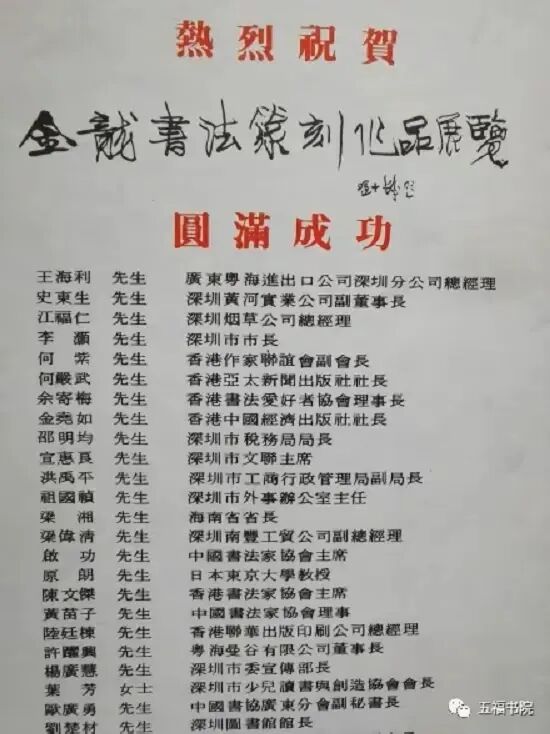 熱烈祝賀
金龍書法篆刻作品展覽
圓滿成功
王海利 先生 廣東粵海進出口公司深圳分公司總經理
史東生 先生 深圳黃河實業公司副董事長
江福仁 先生 深圳烟草公司總經理
李灝 先生 深圳市市長
何紫 先生 香港作家聯誼會副會長
何嚴武 先生 香港亞太新聞出版社社長
余寄梅 先生 香港書法愛好者協會理事長
金堯如 先生 香港中國經濟出版社社長
邵明均 先生 深圳市稅務局局長
宣惠良 先生 深圳市文聯主席
洪禹平 先生 深圳市工商行政管理局副局長
祖國禎 先生 深圳市外事辦公室主任
梁湘 先生 海南省省長
梁偉清 先生 深圳南豐工貿公司副總經理
啟功 先生 中國書法家協會主席
原朗 先生 日本東京大學教授
陳文傑 先生 香港書法家協會主席
黃苗子 先生 中國書法家協會理事
陸廷棟 先生 香港聯華出版印刷公司總經理
許躍興 先生 粵海曼谷有限公司董事長
楊廣慧 先生 深圳市委宣傳部長
葉芳 女士 深圳市少兒讀書與創造協會會長
歐廣勇 先生 中國書協廣東分會副秘書長
劉楚材 先生 深圳圖書館館長
五福书院